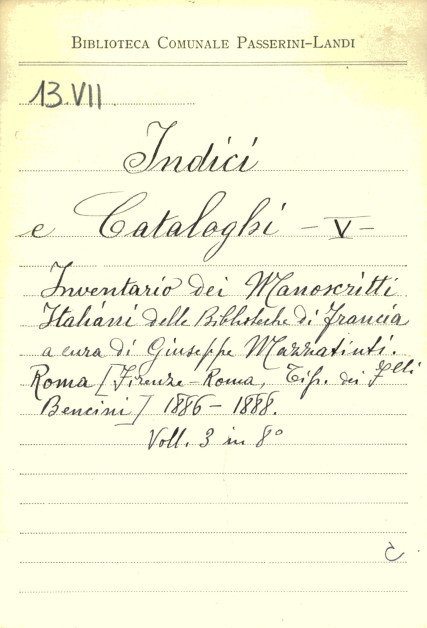 BIBLIOTECA COMUNALE PASSERINI-LANDI
13.VII.
Indici
e Cataloghi - V -
Inventario dei Manoscritti
Italiani delle Biblioteche di Francia
a cura di Giuseppe Mazzatinti.
Roma [Firenze - Roma, Tip. dei Flli
Bencini] 1886 - 1888.
Voll. 3 in 8º